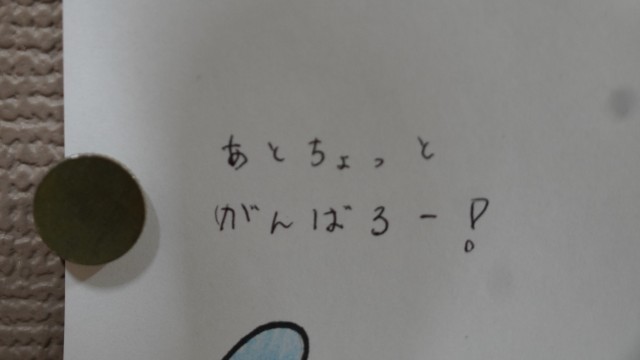 あとちょっと
がんばろー!